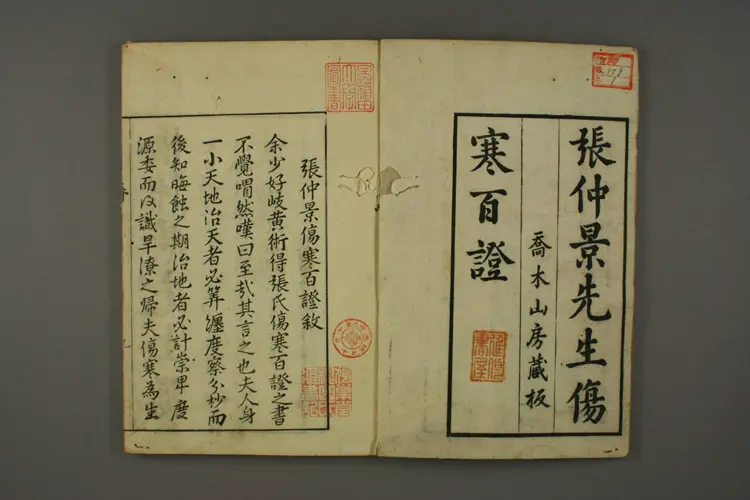 張仲景先生傷
喬木山房藏板
寒百證
張仲景傷寒百證敘
余少好岐黃術得張氏傷寒百證之書
不覺喟然嘆曰至哉其言之也夫人身
一小天地治天者必筭躔度察分杪而
後知晦蝕之期治地者必計崇卑度
源委而後識旱潦之歸夫傷寒為生